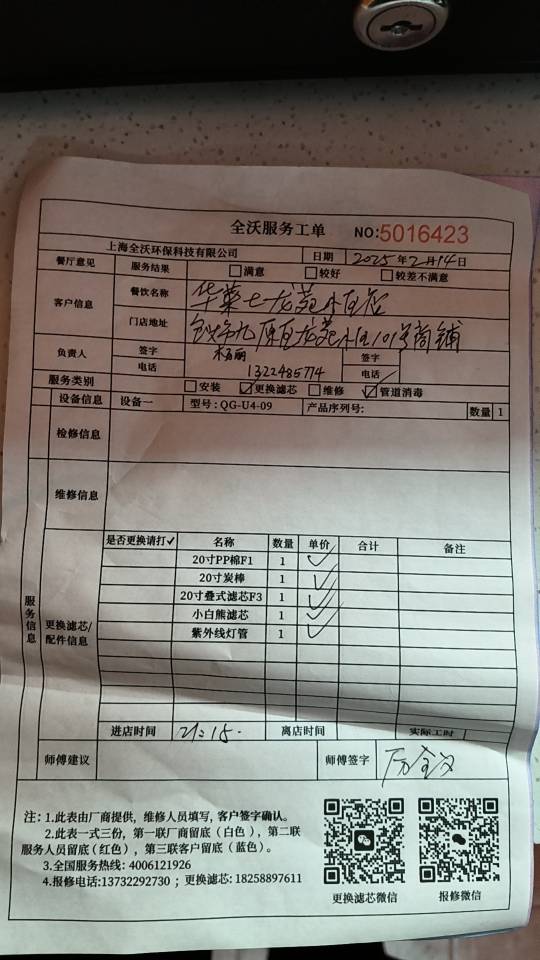 全沃服务工单 NO:5016423
上海全沃环保科技有限公司 日期 2025年2月14日
餐厅意见 服务结果 □满意 □较好 □较差不满意
客户信息 餐饮名称
门店地址 101号商铺
负责人 签字 签字
电话 1322485774 电话
服务类别 □安装 ☑更换滤芯 □维修 ☑管道消毒
设备信息 设备一 型号:QG-U4-09 产品序列号: 数量 1
检修信息
维修信息
服务信息
更换滤芯/配件信息
是否更换请打✓ 名称 数量 单价 合计 备注
20寸PP棉F1 1 ✓
20寸炭棒 1 ✓
20寸叠式滤芯F3 1 ✓
小白熊滤芯 1 ✓
紫外线灯管 1 ✓
进店时间 21:15. 离店时间 实际工时
师傅建议 师傅签字
注: 1.此表由厂商提供, 维修人员填写, 客户签字确认。
2.此表一式三份, 第一联厂商留底 (白色), 第二联
服务人员留底(红色), 第三联客户留底 (蓝色)。
3.全国服务热线: 4006121926
4.报修电话:13732292730 ; 更换滤芯: 18258897611
更换滤芯微信 报修微信